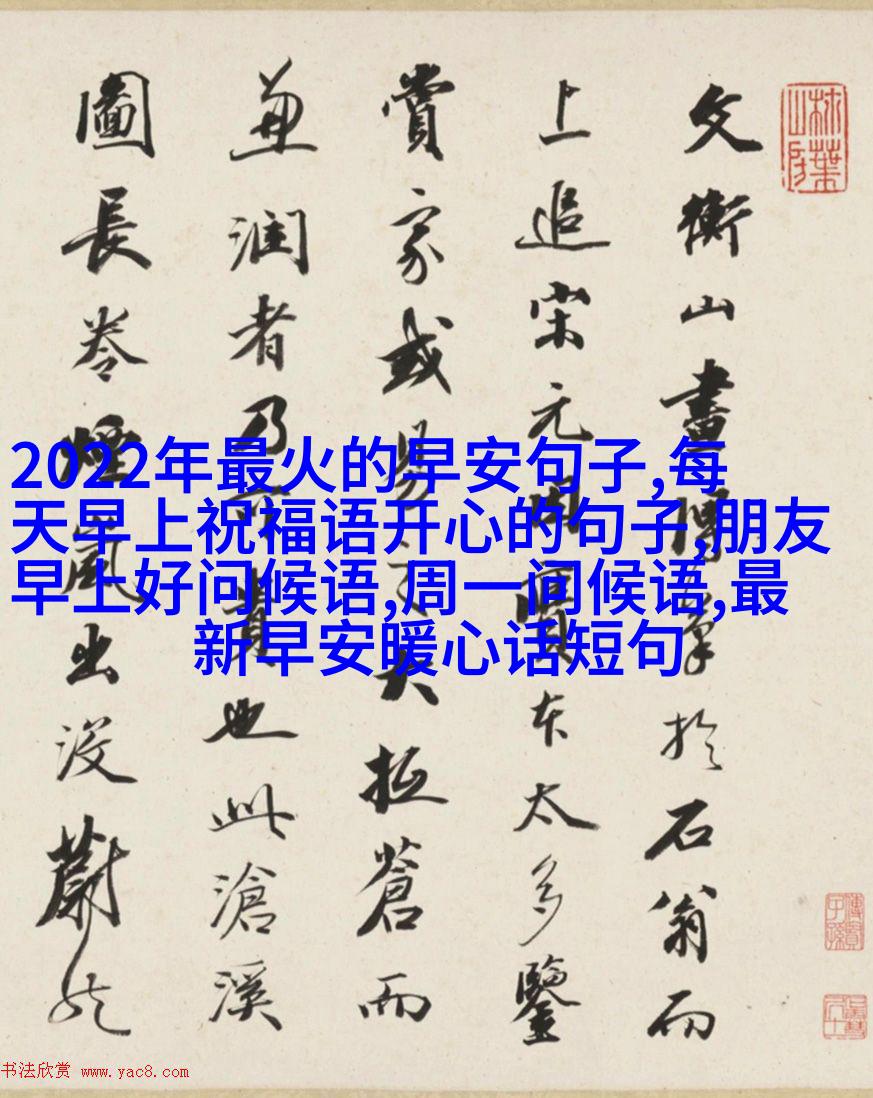 2022年最火的早安句子,每
天早上祝福语开心的句子,朋友
早上好问候语,周一问候语,最
新早安暖心话短句
文衡山畫傳筆於石翁而
上追宋元因贗本太多鑒
賞家或易之大抵蒼而
兼潤者乃可貴也此滄溪
圖長卷煙嵐出沒蔚然
书法欣赏 www.yac8.com